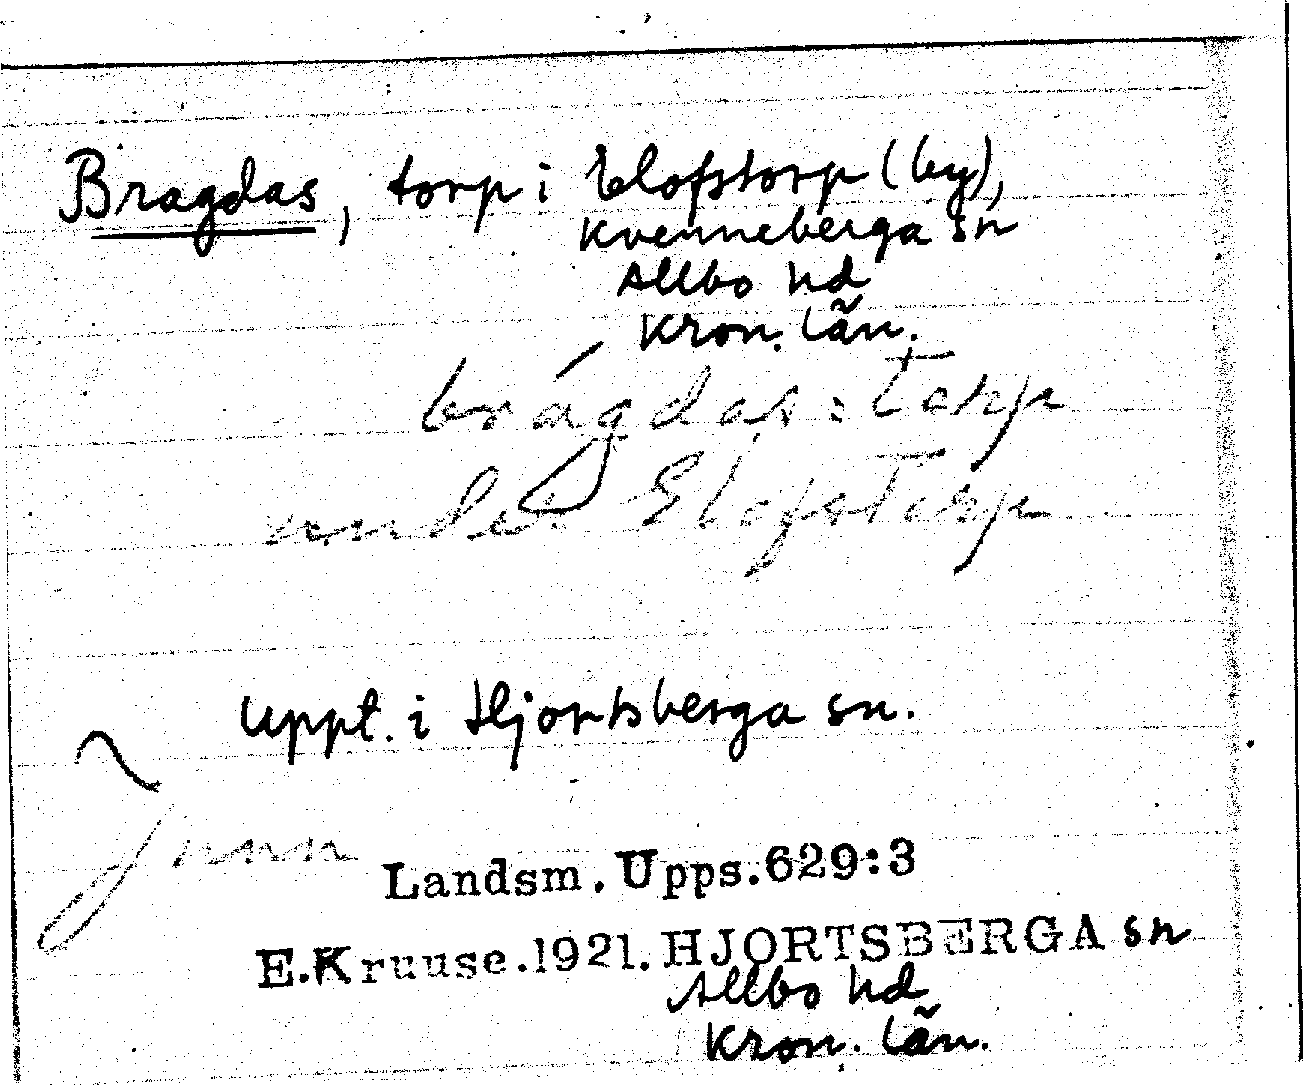 Bragdas, torp i Elofstorp (by),
Kvenneberga sn
Allbo hd
Kron. län.
brágdas: torp
under Elofstorp
Uppt. i Hjortsberga sn.
Landsm. Upps. 629:3
E. Kruuse. 1921. HJORTSBERGA sn
Allbo hd
Kron. län.